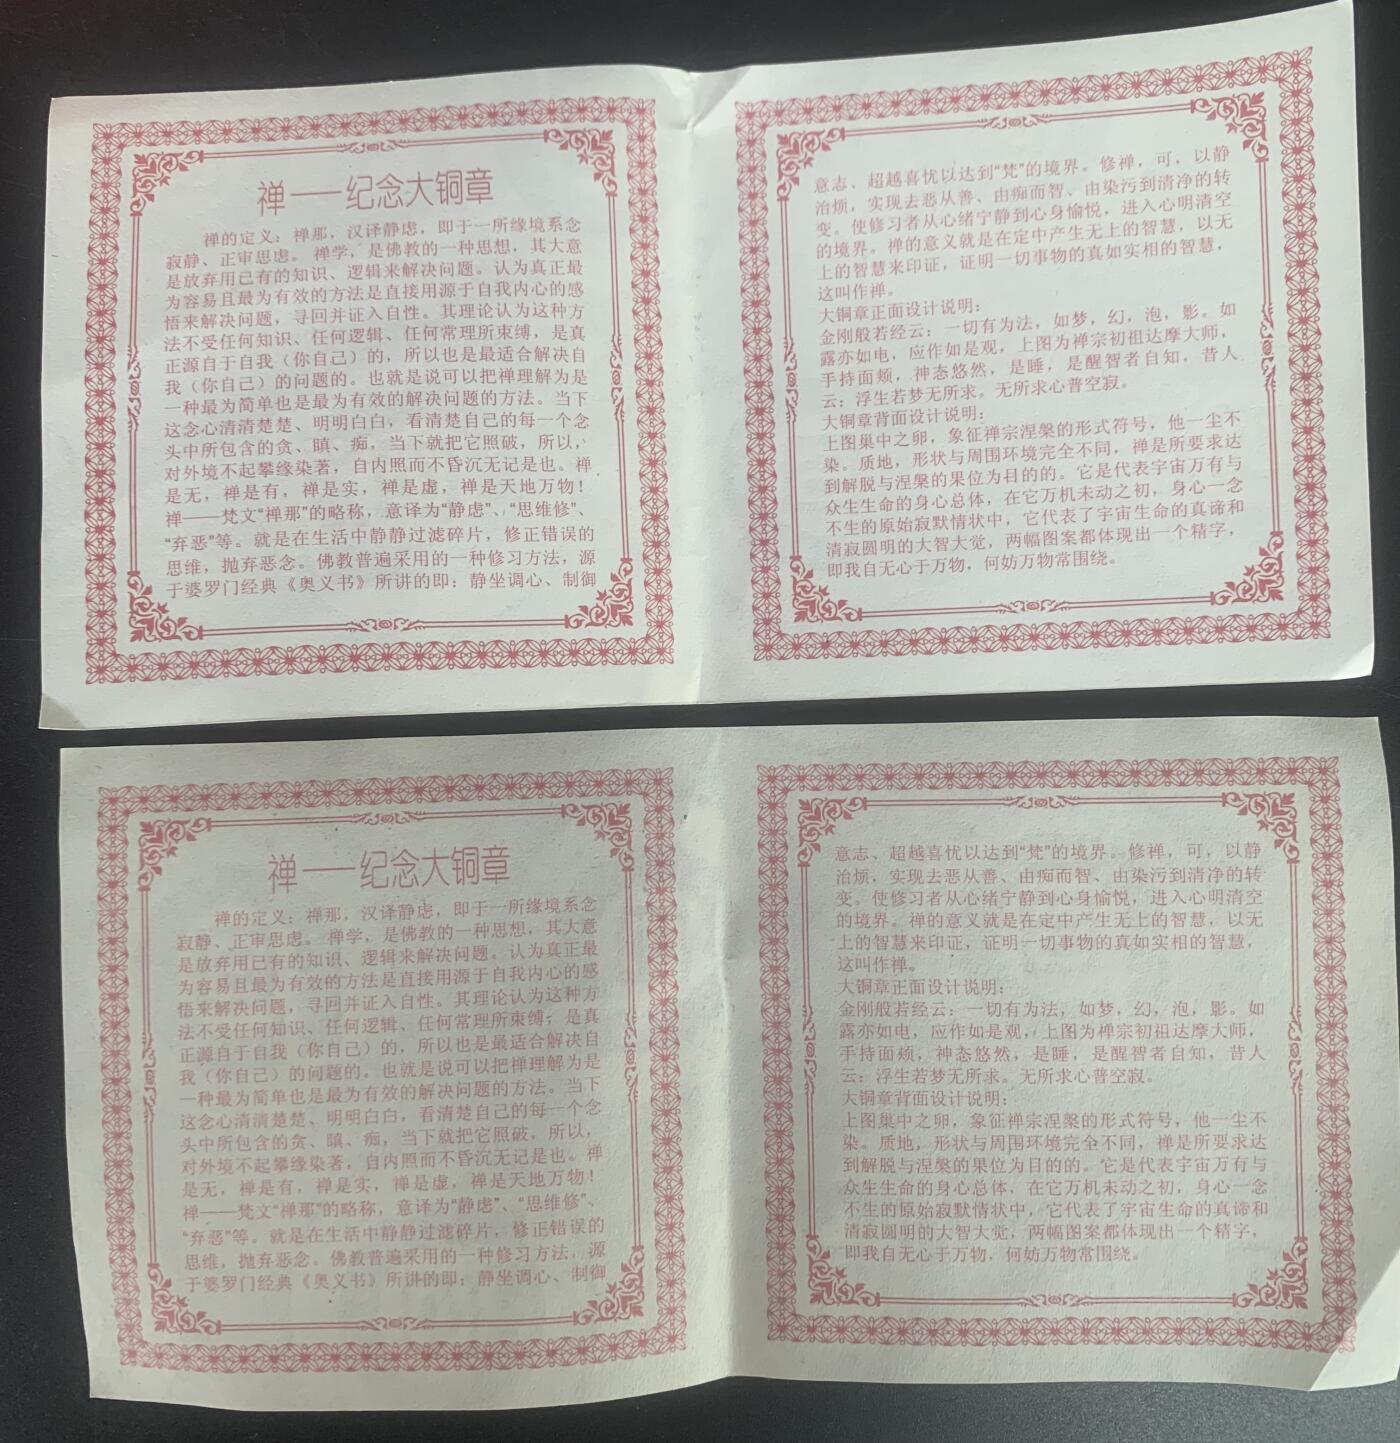 禅——纪念大铜章
禅的定义：禅那，汉译静虑，即于一所缘境系念
寂静、正审思虑。 禅学，是佛教的一种思想，其大意
是放弃用已有的知识、逻辑来解决问题。认为真正最
为容易且最为有效的方法是直接用源于自我内心的感
悟来解决问题，寻回并证入自性。其理论认为这种方
法不受任何知识、任何逻辑、任何常理所束缚，是真
正源自于自我（你自己）的，所以也是最适合解决自
我（你自己）的问题的。也就是说可以把禅理解为是
一种最为简单也是最为有效的解决问题的方法。当下
这念心清清楚楚、明明白白，看清楚自己的每一个念
头中所包含的贪、瞋、痴，当下就把它照破，所以，
对外境不起攀缘染著，自内照而不昏沉无记是也。禅
是无，禅是有，禅是实，禅是虚，禅是天地万物！
禅——梵文“禅那”的略称，意译为“静虑”、“思维修”、
“弃恶”等。就是在生活中静静过滤碎片，修正错误的
思维，抛弃恶念。佛教普遍采用的一种修习方法，源
于婆罗门经典《奥义书》所讲的即：静坐调心、制御
意志、超越喜忧以达到“梵”的境界。修禅，可，以静
治烦，实现去恶从善、由痴而智、由染污到清净的转
变。使修习者从心绪宁静到心身愉悦，进入心明清空
的境界。禅的意义就是在定中产生无上的智慧，以无
上的智慧来印证，证明一切事物的真如实相的智慧，
这叫作禅。
大铜章正面设计说明：
金刚般若经云：一切有为法，如梦，幻，泡，影。如
露亦如电，应作如是观，上图为禅宗初祖达摩大师，
手持面颊，神态悠然，是睡，是醒智者自知，昔人
云：浮生若梦无所求。无所求心普空寂。
大铜章背面设计说明：
上图巢中之卵，象征禅宗涅槃的形式符号，他一尘不
染。质地，形状与周围环境完全不同，禅是所要求达
到解脱与涅槃的果位为目的的。它是代表宇宙万有与
众生生命的身心总体，在它万机未动之初，身心一念
不生的原始寂默情状中，它代表了宇宙生命的真谛和
清寂圆明的大智大觉，两幅图案都体现出一个精字，
即我自无心于万物，何妨万物常围绕。
禅——纪念大铜章
禅的定义：禅那，汉译静虑，即于一所缘境系念
寂静、正审思虑。 禅学，是佛教的一种思想，其大意
是放弃用已有的知识、逻辑来解决问题。认为真正最
为容易且最为有效的方法是直接用源于自我内心的感
悟来解决问题，寻回并证入自性。其理论认为这种方
法不受任何知识、任何逻辑、任何常理所束缚；是真
正源自于自我（你自己）的，所以也是最适合解决自
我（你自己）的问题的。也就是说可以把禅理解为是
一种最为简单也是最为有效的解决问题的方法。当下
这念心清清楚楚、明明白白，看清楚自己的每一个念
头中所包含的贪、瞋、痴，当下就把它照破，所以，
对外境不起攀缘染著，自内照而不昏沉无记是也。禅
是无，禅是有，禅是实，禅是虚，禅是天地万物！
禅——梵文“禅那”的略称，意译为“静虑”、“思维修”、
“弃恶”等。就是在生活中静静过滤碎片，修正错误的
思维，抛弃恶念。佛教普遍采用的一种修习方法，源
于婆罗门经典《奥义书》所讲的即：静坐调心、制御
意志、超越喜忧以达到“梵”的境界。修禅，可，以静
治烦，实现去恶从善、由痴而智、由染污到清净的转
变。使修习者从心绪宁静到心身愉悦，进入心明清空
的境界。禅的意义就是在定中产生无上的智慧，以无
上的智慧来印证，证明一切事物的真如实相的智慧，
这叫作禅。
大铜章正面设计说明：
金刚般若经云：一切有为法，如梦，幻，泡，影。如
露亦如电，应作如是观，上图为禅宗初祖达摩大师，
手持面颊，神态悠然，是睡，是醒智者自知，昔人
云：浮生若梦无所求。无所求心普空寂。
大铜章背面设计说明：
上图巢中之卵，象征禅宗涅槃的形式符号，他一尘不
染。质地，形状与周围环境完全不同，禅是所要求达
到解脱与涅槃的果位为目的的。它是代表宇宙万有与
众生生命的身心总体，在它万机未动之初，身心一念
不生的原始寂默情状中，它代表了宇宙生命的真谛和
清寂圆明的大智大觉，两幅图案都体现出一个精字，
即我自无心于万物，何妨万物常围绕。